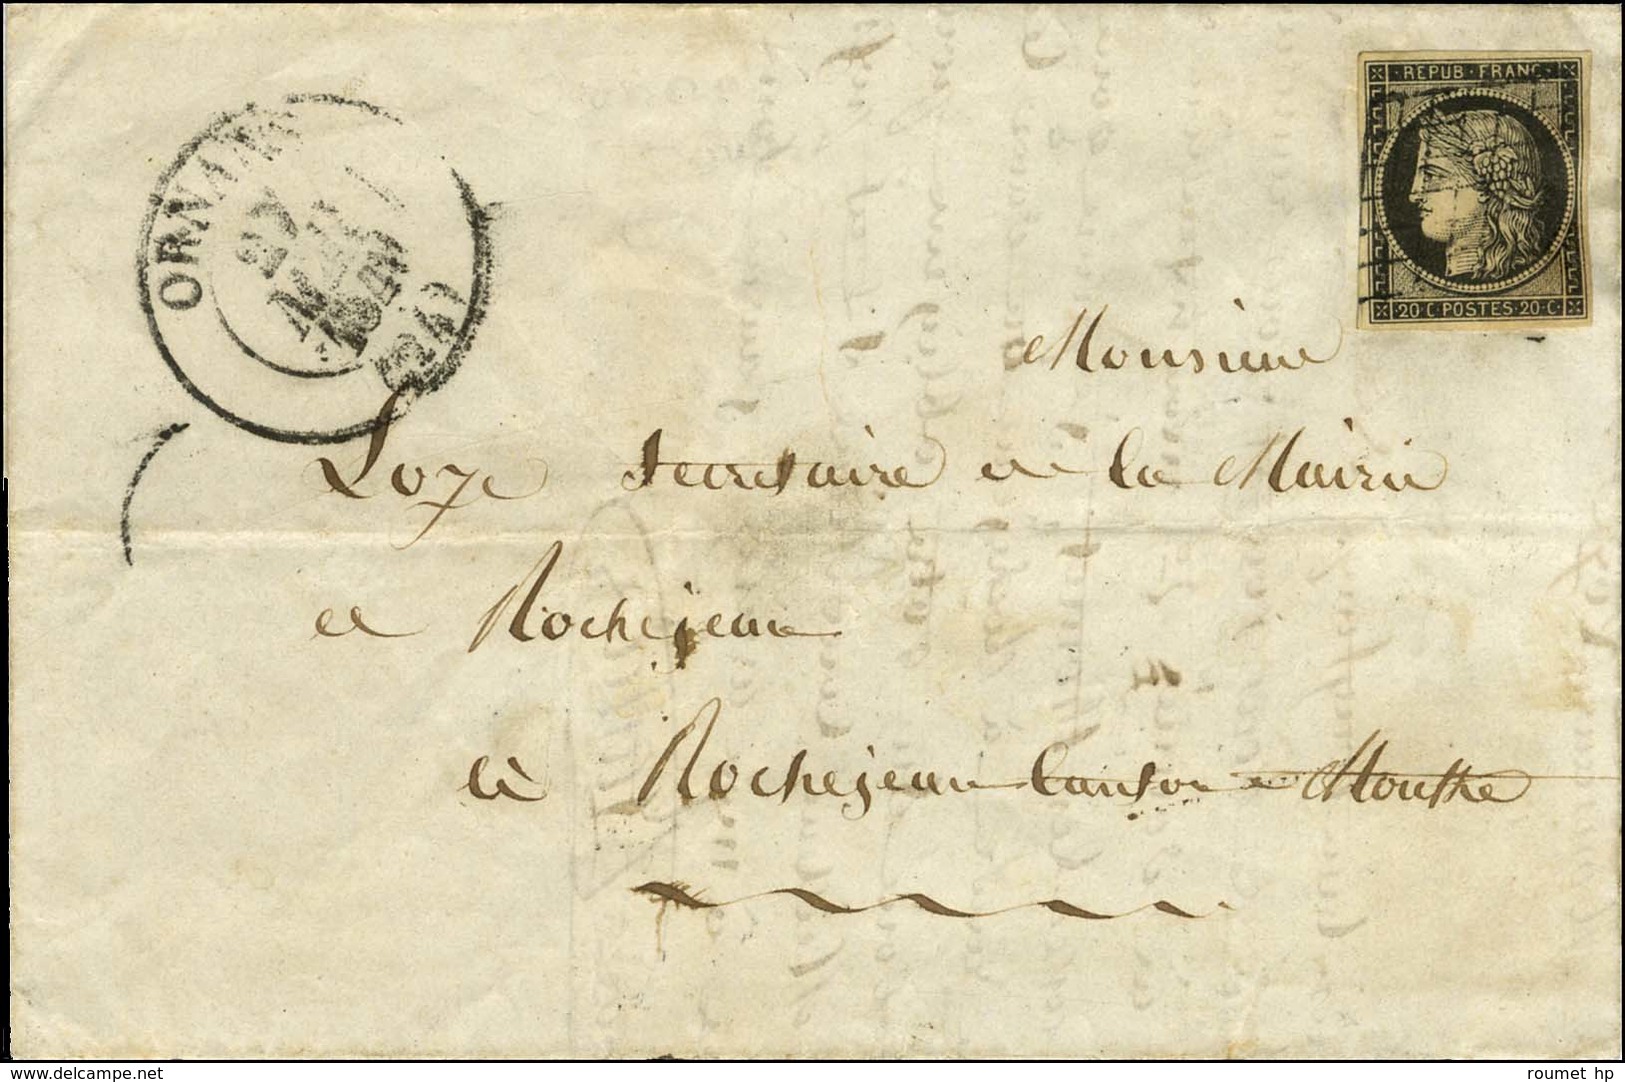 REPUB·FRANC·
·20·C·POSTES·20·C·
ORNANS
27
(24)
Monsieur
Loze secretaire de la Mairie
de Rochejean
à Rochejean Canton de Mouthe
www.delcampe.net
roumet hp